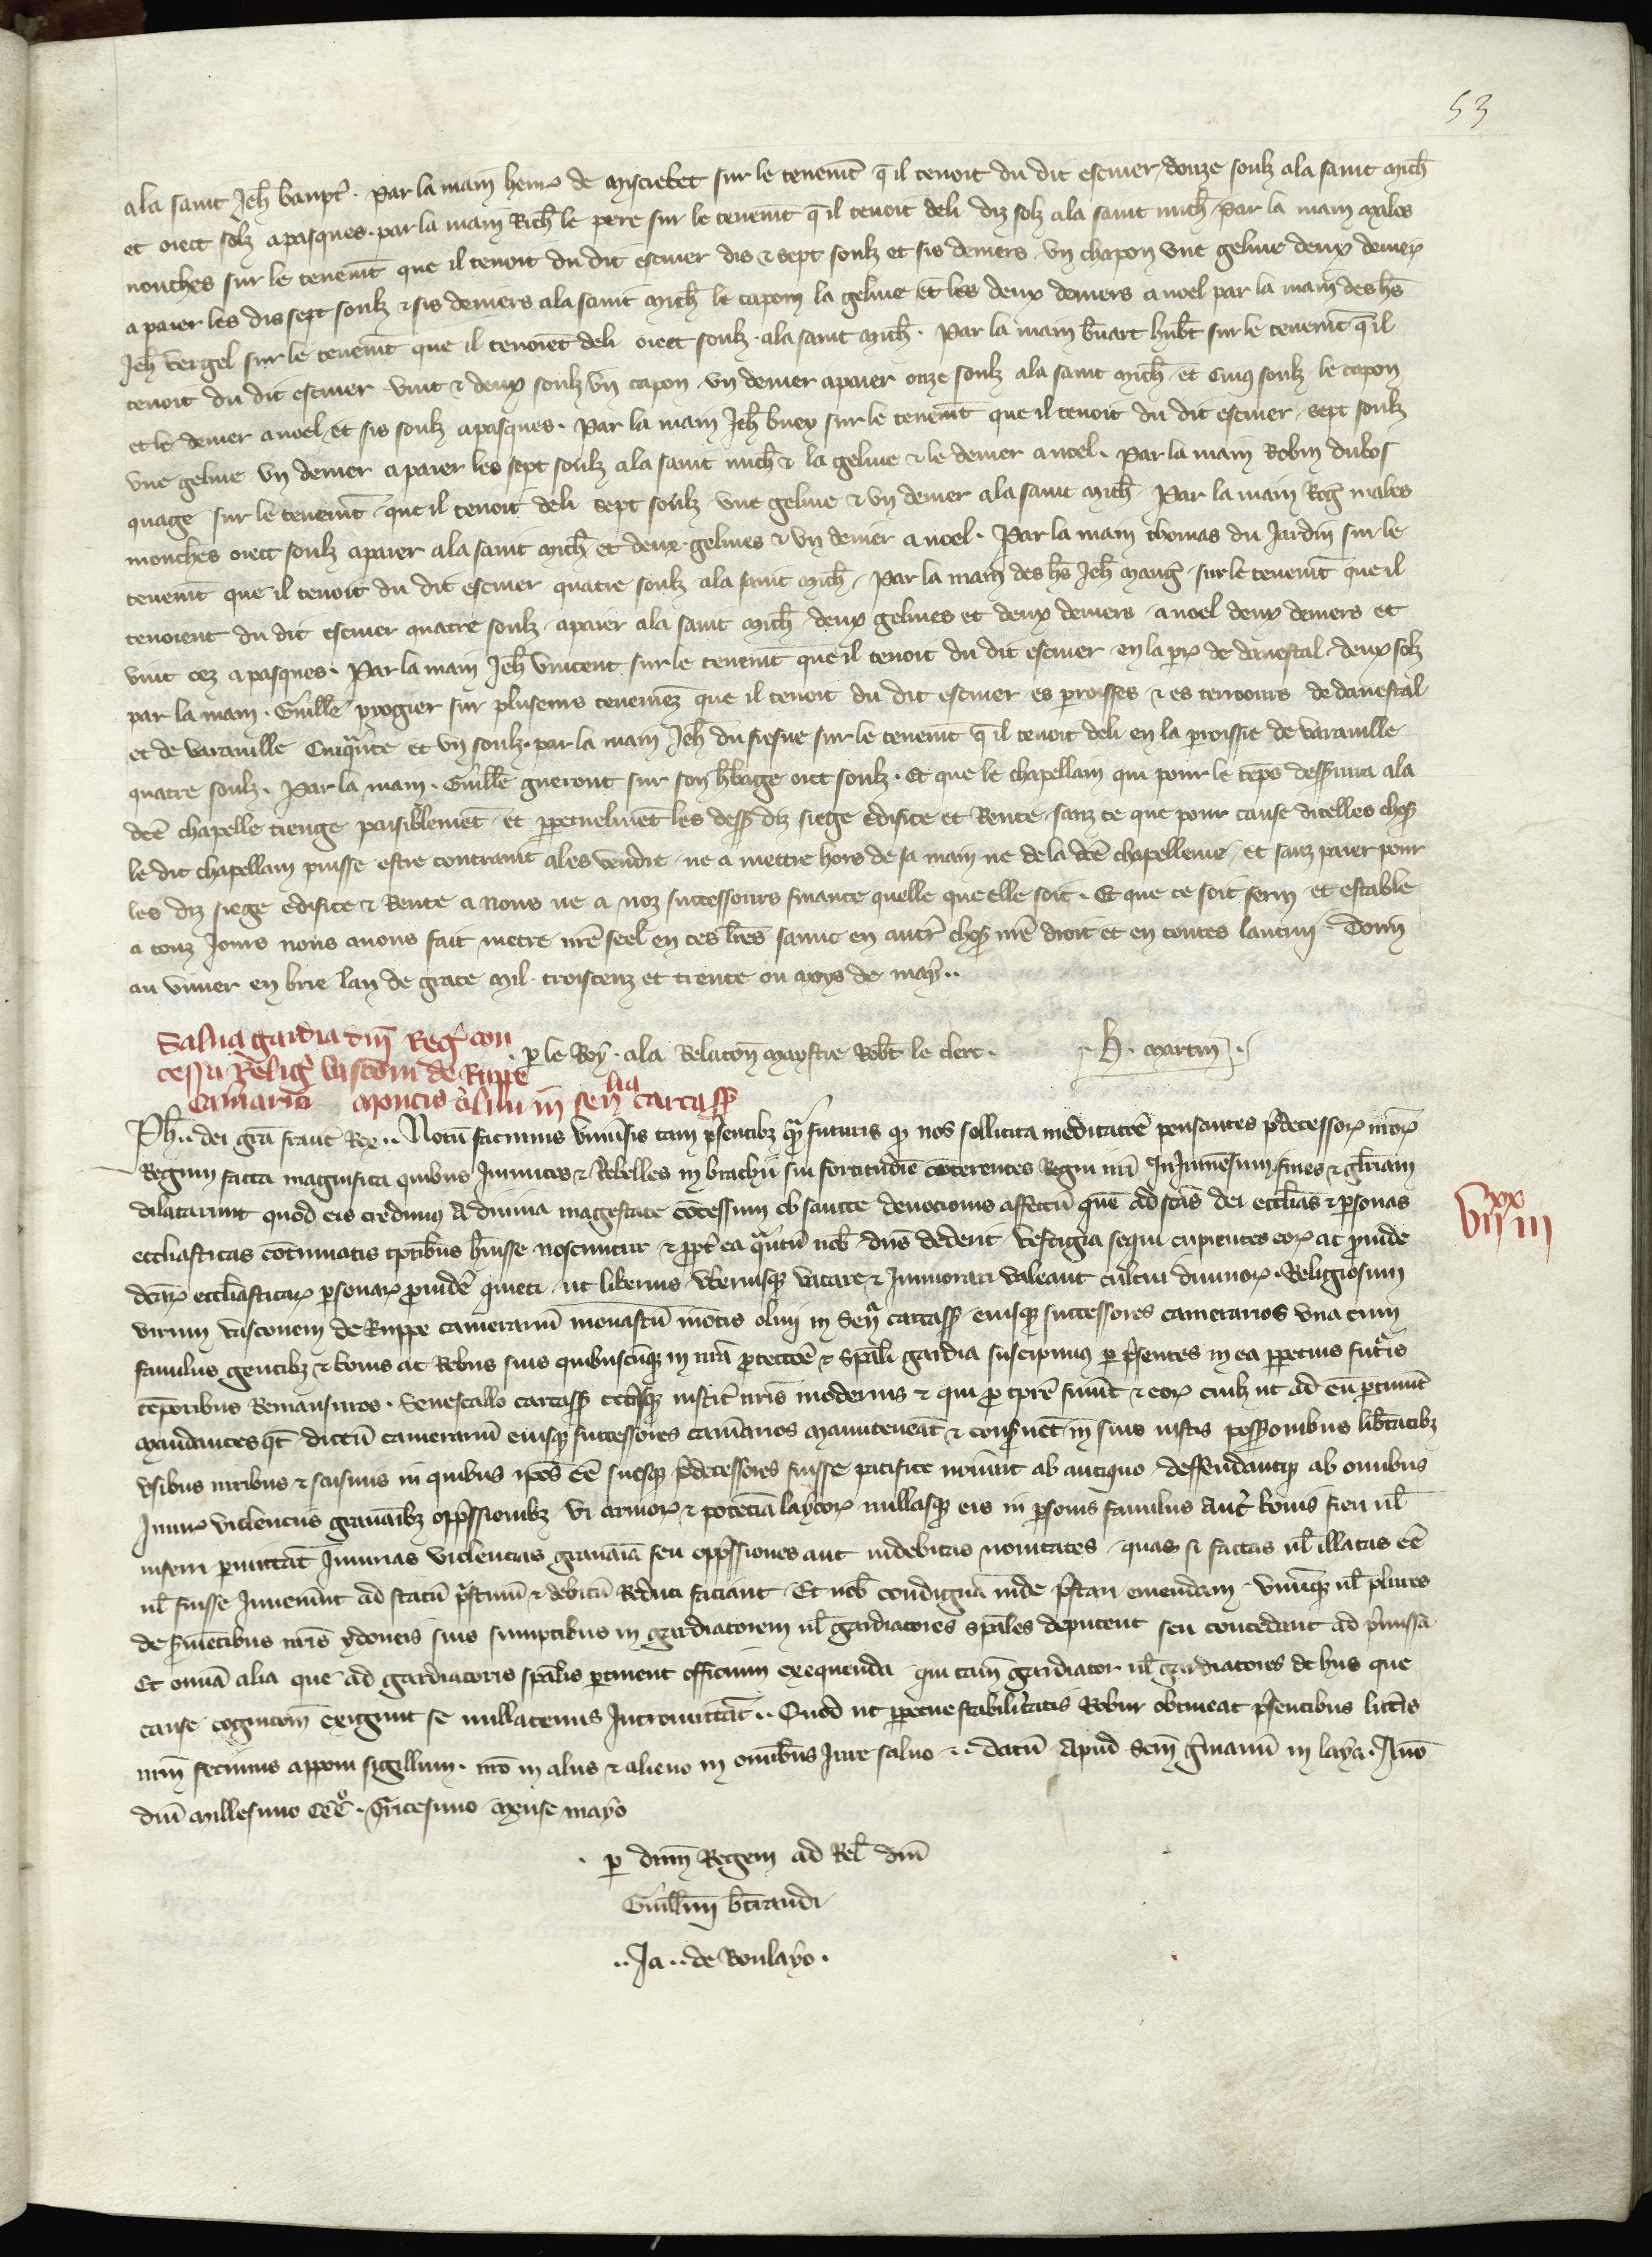 53
ala saint Jeħ baupt̾. Par la main henr̾ de misietet sur le tenemt̄ q̄ il tenoit du dit escuier, douze soulz ala saint mich̄
et oiect solz apasques. par la main Rich̄ le pere sur le tenemt̄ q̄ il tenoit deli diz solz ala saint mich̄ par la main males
nouches sur le tenemt̄ que il tenoit du dit escuier dis & sept soulz et sis deniers vn chapon vne geline deux denier̾
a paier les dis sept soulz & sis deniers ala saint mich̄ le capon la geline et les deux deniers a noel par la main des hs̄
Jeħ vergel sur le tenemt̄ que il tenoiet deli oiect soulz. ala saint mich̄. Par la main b̄nart hub̄t sur le tenemt̄ q̄ il
tenoit du dit escuier vint & deux soulz vn capon vn denier apaier onze soulz ala saint mich̄ et cinq soulz le capon
et le denier a noel et sis soulz apasques. Par la main Jeħ buey sur le tenemt̄ que il tenoit du dit escuier sept soulz
vne geline vn denier apaier les sept soulz ala saint mich̄ & la geline & le denier a noel. Par la main Robin dubos
quage sur le tenemt̄ que il tenoit deli sept soulz vne geline & vn denier ala saint mich̄. Par la main Rog̾ males
mouches oiect soulz apaier ala saint mich̄ et deux gelines & vn denier a noel. Par la main thomas du Jardin sur le
tenemt̄ que il tenoit du dit escuier quatre soulz ala saint mich̄. Par la main des hs̄ Jeħ maug̾ sur le tenemt̄ que il
tenoient du dit escuier quatre soulz apaier ala saint mich̄ deux gelines et deux deniers a noel deux deniers et
vint oez apasques. Par la main Jeħ vincent sur le tenemt̄ que il tenoit du dit escuier en la par̾ de danestal deux solz
par la main. Guill̄e progier sur pluseurs tenemēz que il tenoit du dit escuier es paroisses & es terroours de danestal
et de varauille Cinquāte et vn soulz. par la main Jeħ du fresne sur le tenemt̄ q̄ il tenoit deli en la paroisse de varauille
quatre soulz. Par la main. Guill̄e gueront sur son h̄bage oiet soulz. Et que le chapellain qui pour le tēps dess̄uira ala
dc̄e chapelle tiengne paisiblemēt et perpetuelmēt les dess̾ diz siege edifice et Rente sanz ce que pour cause dicelles chos̾
le dit chapellain puisse estre contraint ales vendre ne a mettre hors de sa main ne de la dc̄e chapellenie et sanz paier pour
les diz siege edifice & Rente a nous ne a noz successours finance quelle que elle soit. Et que ce soit ferm et estable
a touz Jours nous auons fait metre nr̄e seel en ces l̄res sauue en autr̾ chos̾ nr̄e droit et en toutes lautrui. Donn̄
au viuier en brie lan de grace mil. troiscenz et trente ou moys de may..
. par le Roy. ala Relacōn maystre Rob̄t le clerc. .H. martin.
Salua gardia dn̄i Reg̾ con
cessa Relig̾ vasconi de Ruppe
cam̄ario montis oliui in sen̄lia carcass̾
Ph̄.. dei grā franc̾ Rex.. Notū facimus vniu̾sis tam p̾sentibz q̃m futuris q̄ nos sollicita meditatōe pensantes p̾decessor̾ nr̄or̾
Regum facta magnifica quibus Inimicos & Rebelles in brachii sui fortitudīe cōterentes Regni nr̄i In Jmmēsum fines & gl̄oriam
dilatarunt quod eis credimus A diuina magestate cōcessum ob sancte deuocionis affectū quē ad scās dei eccl̄ias & personas
eccl̄iasticas cōtinuatis tp̄ribus h̄uisse noscuntur & propt̾ ea q̃ntū nob̄ dn̄s dederit vestigia sequi cupientes eor̾ ac prouide
dc̄ar̾ eccl̄iasticar̾ personar̾ prouidē quieti ut liberius vberiusq̾ vacare & Immorari valeant cultui diuinor̾. Religiosum
virum vasconem de Ruppe camerariū monast̾ij mōtis oliui in Sen̄ia carcass̾ eiusq̾ successores camerarios vna cum
familiis gentibz & bonis ac Rebus suis quibuscūq̾ in nr̄a protectōe & sp̄ali gardia suscipimus per p̾sentes in ea perpetuis futuris
tēporibus Remansuros. Senescallo carcass̾ cet̾isq̾ iustic̾ nr̄is modernis & qui pro tp̄re fuerīt & eor̾ cuil̄z ut ad eū p̄tinuit
Mandantes q̄t dictū camerariū eiusq̾ successores cam̄arios manuteneāt & conseruēt in suis iustis possōnibus lib̄tatibz
vsibus iuribus & saisinis in quibus ip̄os eē suosq̾ p̾decessores fuisse pacifice nou̾int ab antiquo deffendantq̾ ab omnibus
Iniur̾ violenciis grauāībz opp̾ssionibz vi armor̾ & potēcia laycor̾ nullasq̾ eis in personis familiis aut bonis fieri ul̄
inferri p̄mittāt Iniurias violencias grauāīa seu opp̾ssiones aut indebitas nouitates quas si factas ul̄ illatas eē
ul̄ fuisse Inuen̾int ad statū p̾stinū & debitū Reduci faciant Et nob̄ condignā inde p̾stari emendam vnūq̾ ul̄ plures
de seruiētibus nr̄is ydoneis suis sumptibus in gardiatorem ul̄ gardiatores sp̄ales deputent seu concedant ad p̾missa
Et omīa alia que ad gardiatoris sp̄alis p̄tinent officium exequenda qui tam̄ gardiator ul̄ gardiatores de hiis que
cause cognicōm exigunt se nullatenus Intromittāt.. Quod ut perpetue stabilitatis Robur obtineat p̾sentibus litt̾is
nr̄m fecimus apponi sigillum. nr̄o in aliis & alieno in omībus Jure saluo.. datū Apud Scm̄ g̾manū in laya. Anō
dn̄i Millesimo ccc°. Tricesimo mense mayo
. per dn̄m Regem ad Rel̄ dn̄i
Guill̄mi b̄trandi
..Ja.. de Boulayo.
VIIxx III